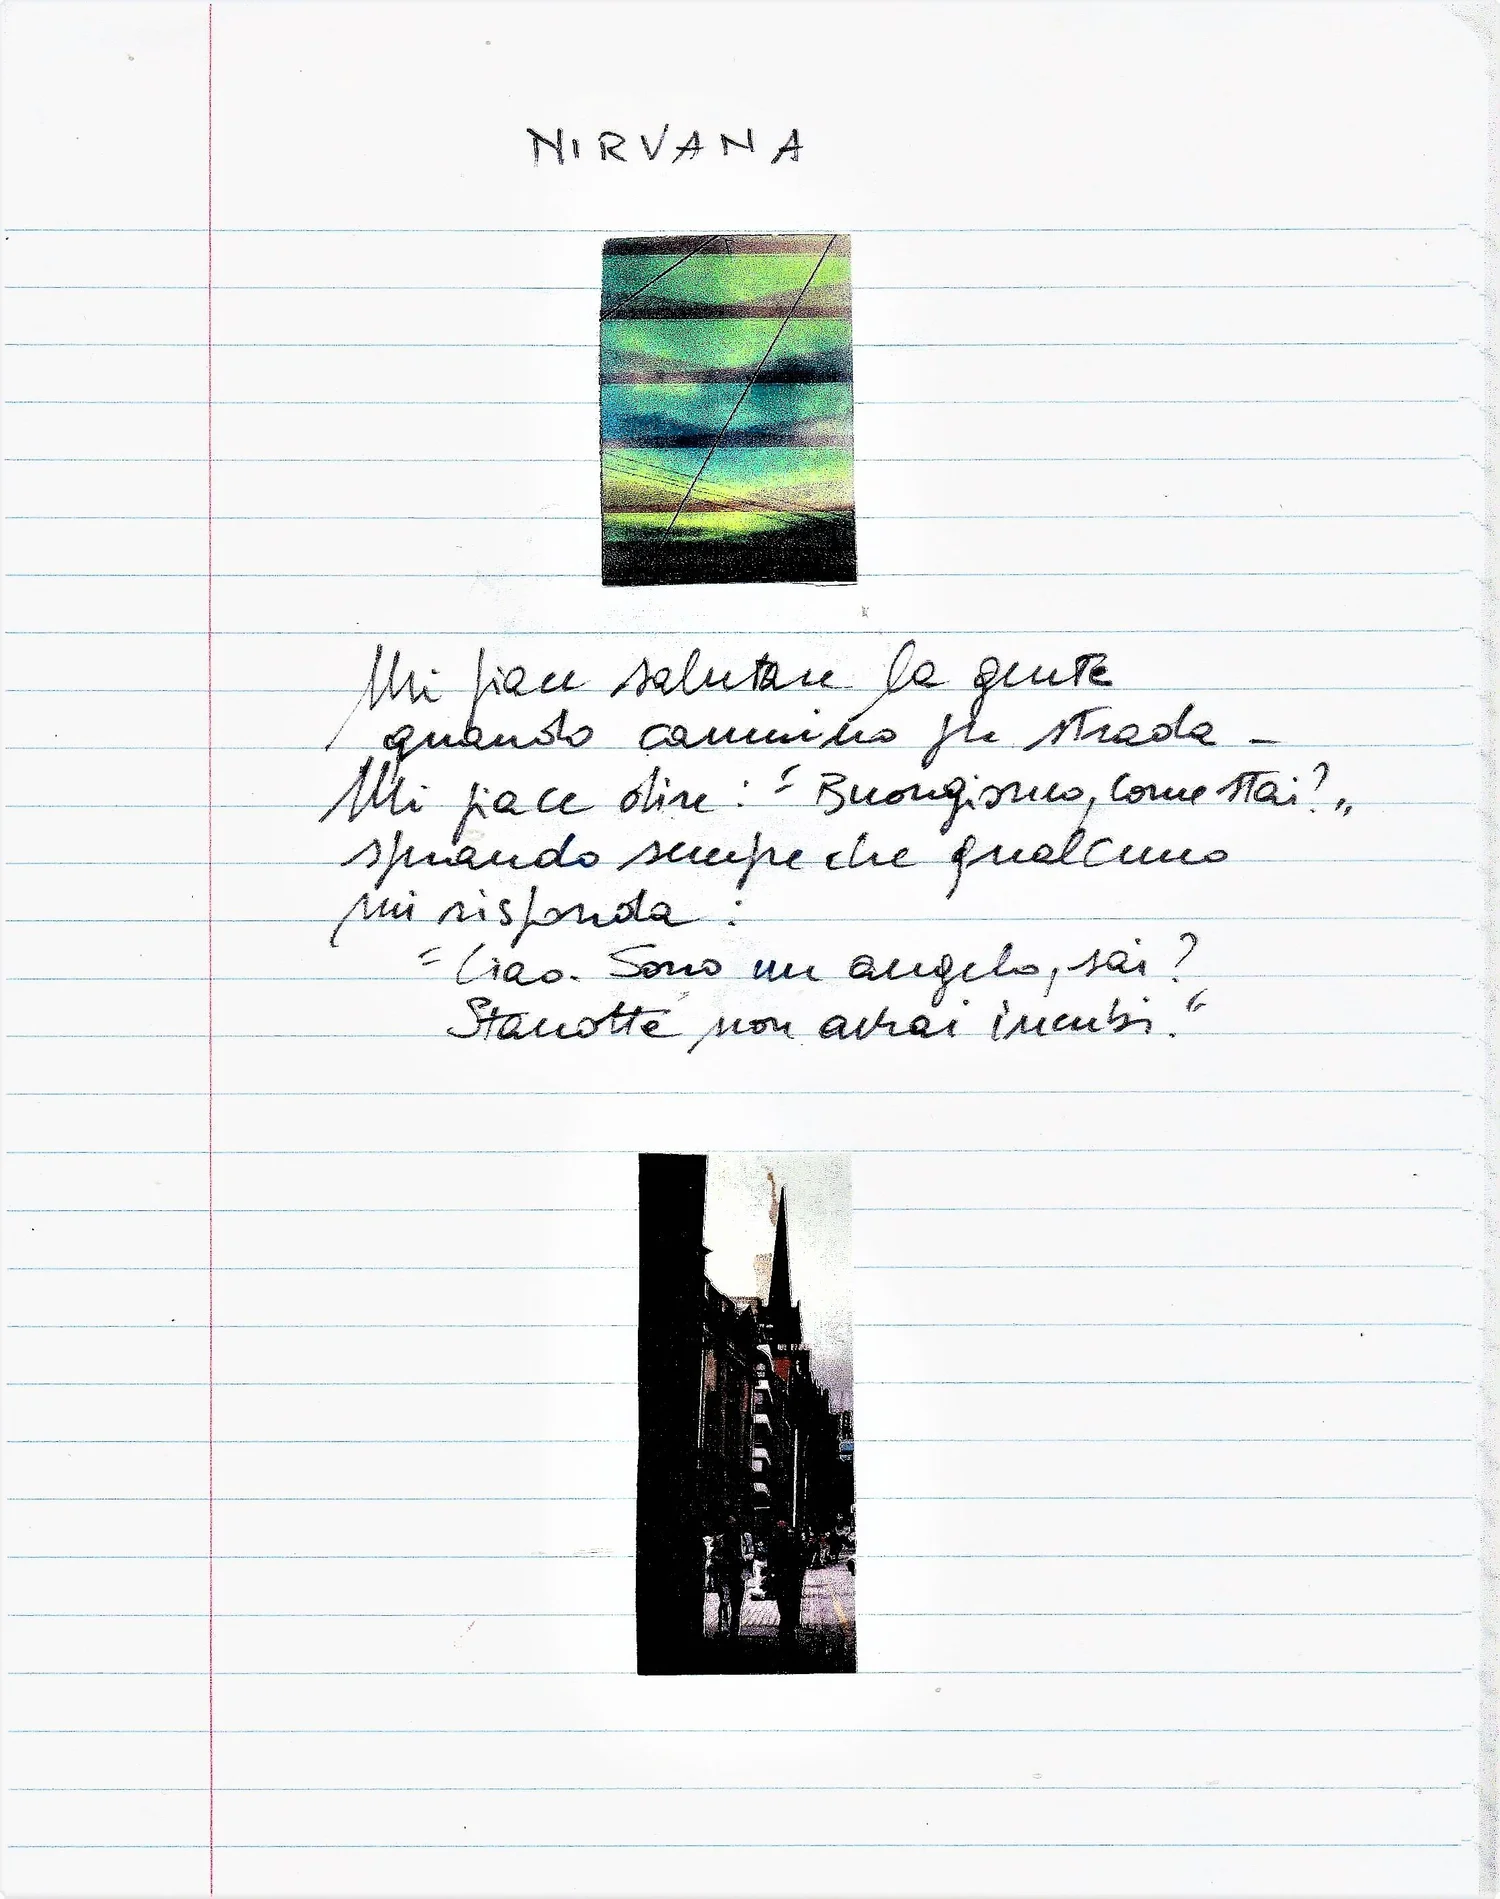 NIRVANA
Mi piace salutare la gente
quando cammino per strada -
Mi piace dire: "Buongiorno, come stai?„
sperando sempre che qualcuno
mi risponda:
"Ciao. Sono un angelo, sai?
Stanotte non avrai incubi."